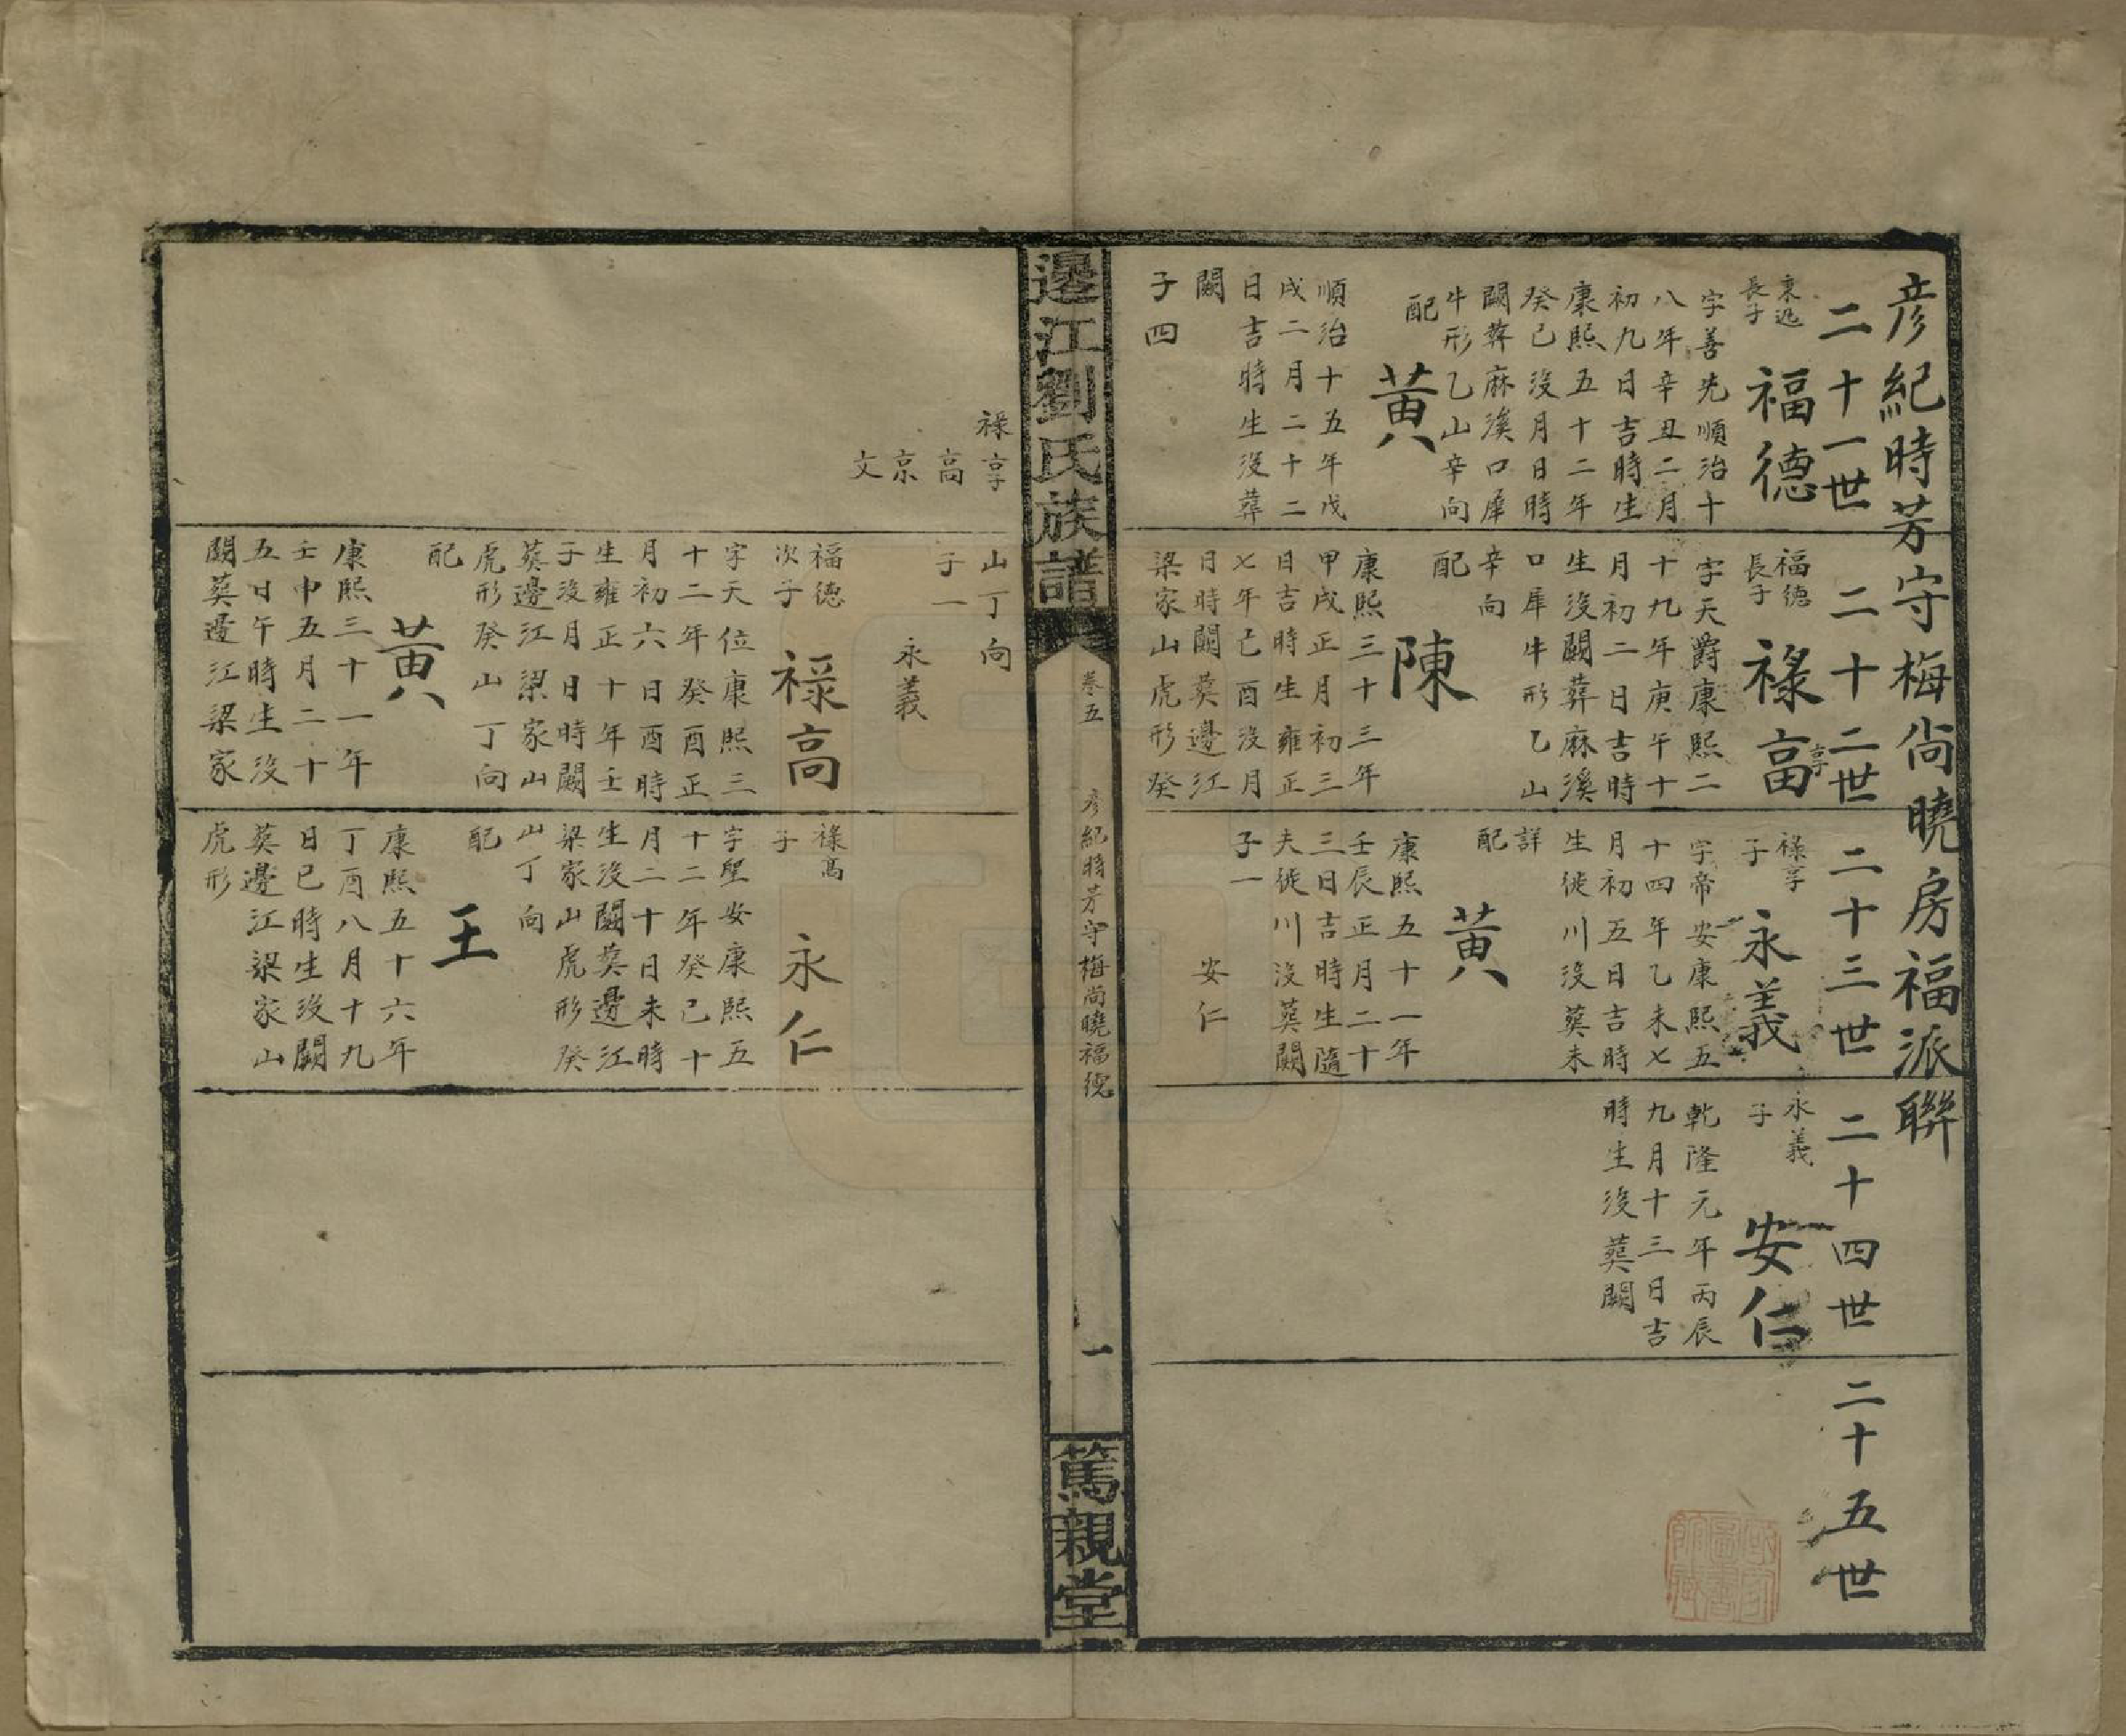 彦紀時芳守梅尚曉房福派聯
二十一世
二十二世
二十三世
二十四世
二十五世
長子
福德
字善先順治十
八年辛丑二月
初九日吉時生
康熙五十二年
癸巳沒月日時
闕葬麻溪口犀
牛形乙山辛向
配
黄
順治十五年戊
戌二月二十二
日吉時生沒葬
闕
子四
福德
長子
祿亯
享
字天爵康熙二
十九年庚午十
月初二日吉時
生沒闕葬麻溪
口犀牛形乙山
辛向
配
陳
康熙三十三年
甲戌正月初三
日吉時生雍正
七年己酉沒月
日時闕葬邊江
梁家山虎形癸
祿享
子
永義
字帝安康熙五
十四年乙未七
月初五日吉時
生徙川沒葬未
詳
配
黄
康熙五十一年
壬辰正月二十
三日吉時生隨
夫徙川沒葬闕
子一
安仁
永義
子
安仁
乾隆元年丙辰
九月十三日吉
時生沒葬闕
邊江劉氏族譜
卷五
彦紀時芳守梅尚曉福德
一
篤親堂
祿享
高
京
文
山丁向
子一
永義
福德
次子
祿高
字天位康熙三
十二年癸酉正
月初六日酉時
生雍正十年壬
子沒月日時闕
葬邊江梁家山
虎形癸山丁向
配
黄
康熙三十一年
壬申五月二十
五日午時生沒
闕葬邊江梁家
祿高
子
永仁
字聖安康熙五
十二年癸巳十
月二十日未時
生沒闕葬邊江
梁家山虎形癸
山丁向
配
王
康熙五十六年
丁酉八月十九
日巳時生沒闕
葬邊江梁家山
虎形